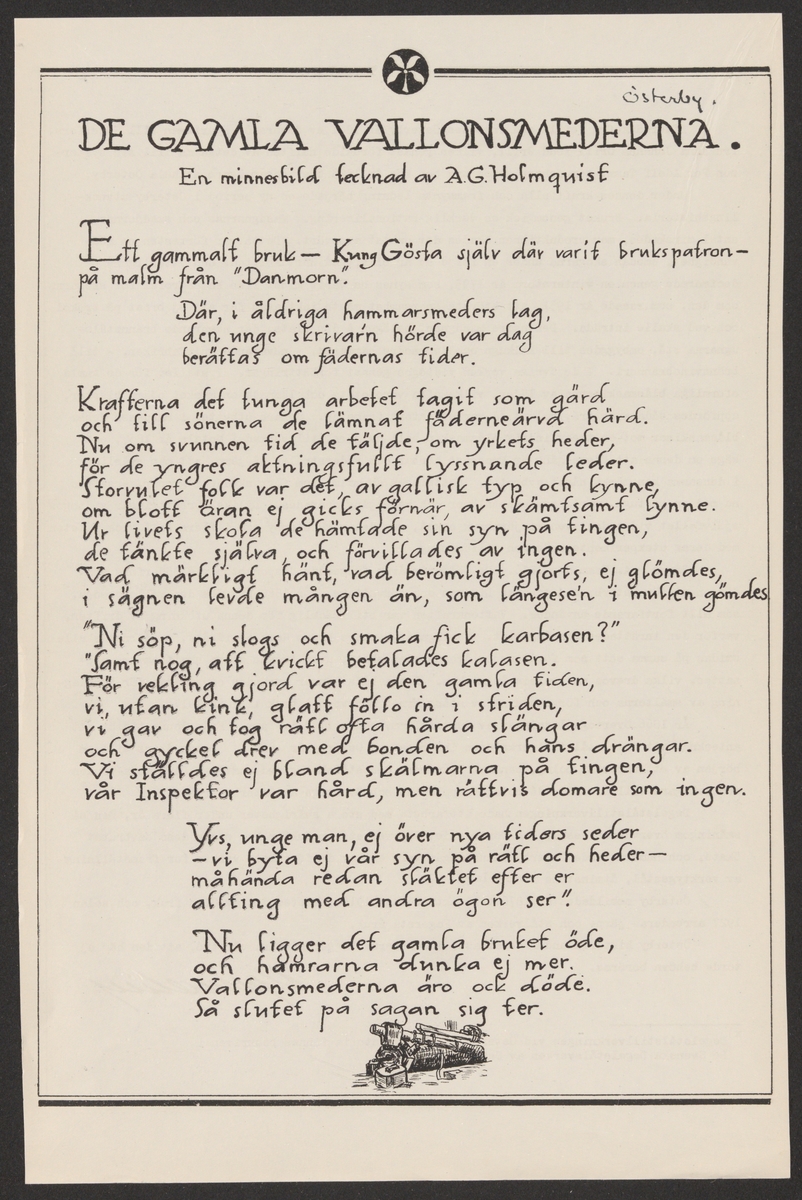 Österby.
DE GAMLA VALLONSMEDERNA.
En minnesbild tecknad av A.G. Holmquist
Ett gammalt bruk — Kung Gösta själv där varit brukspatron —
på malm från "Danmorn".
Där, i åldriga hammarsmeders lag,
den unge skrivar'n hörde var dag
berättas om fädernas tider.
Krafterna det tunga arbetet tagit som gärd
och till sönerna de lämnat fäderneärvd härd.
Nu om svunnen tid de täljde, om yrkets heder,
för de yngres aktningsfullt lyssnande leder.
Storvulet folk var det, av gallisk typ och kynne,
om blott äran ej gicks förnär, av skämtsamt lynne.
Ur livets skola de hämtade sin syn på tingen,
de tänkte själva, och förvillades av ingen.
Vad märkligt hänt, vad berömligt gjorts, ej glömdes,
i sägnen levde mången än, som längese'n i mullen gömdes
"Ni söp, ni slogs och smaka fick karbasen?"
"Samt nog, att kvickt betalades kalasen.
För vekling gjord var ej den gamla tiden,
vi, utan kink, glatt föllo in i striden,
vi gav och tog rätt ofta hårda slängar
och gyckel drev med bonden och hans drängar.
Vi ställdes ej bland skälmarna på tingen,
vår Inspektor var hård, men rättvis domare som ingen.
Yvs, unge man, ej över nya tiders seder
— vi byta ej vår syn på rätt och heder —
måhända redan släktet efter er
allting med andra ögon ser".
Nu ligger det gamla bruket öde,
och hamrarna dunka ej mer.
Vallonsmederna äro ock döde.
Så slutet på sagan sig ter.